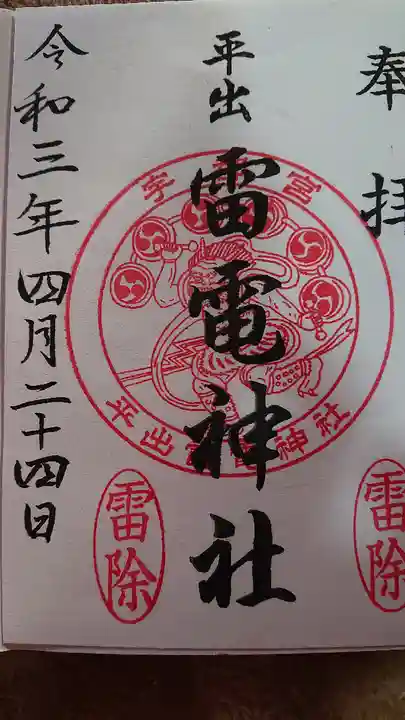 奉拝
平出
雷電神社
令和三年四月二十四日
宇都宮
平出雷電神社
雷除
雷除